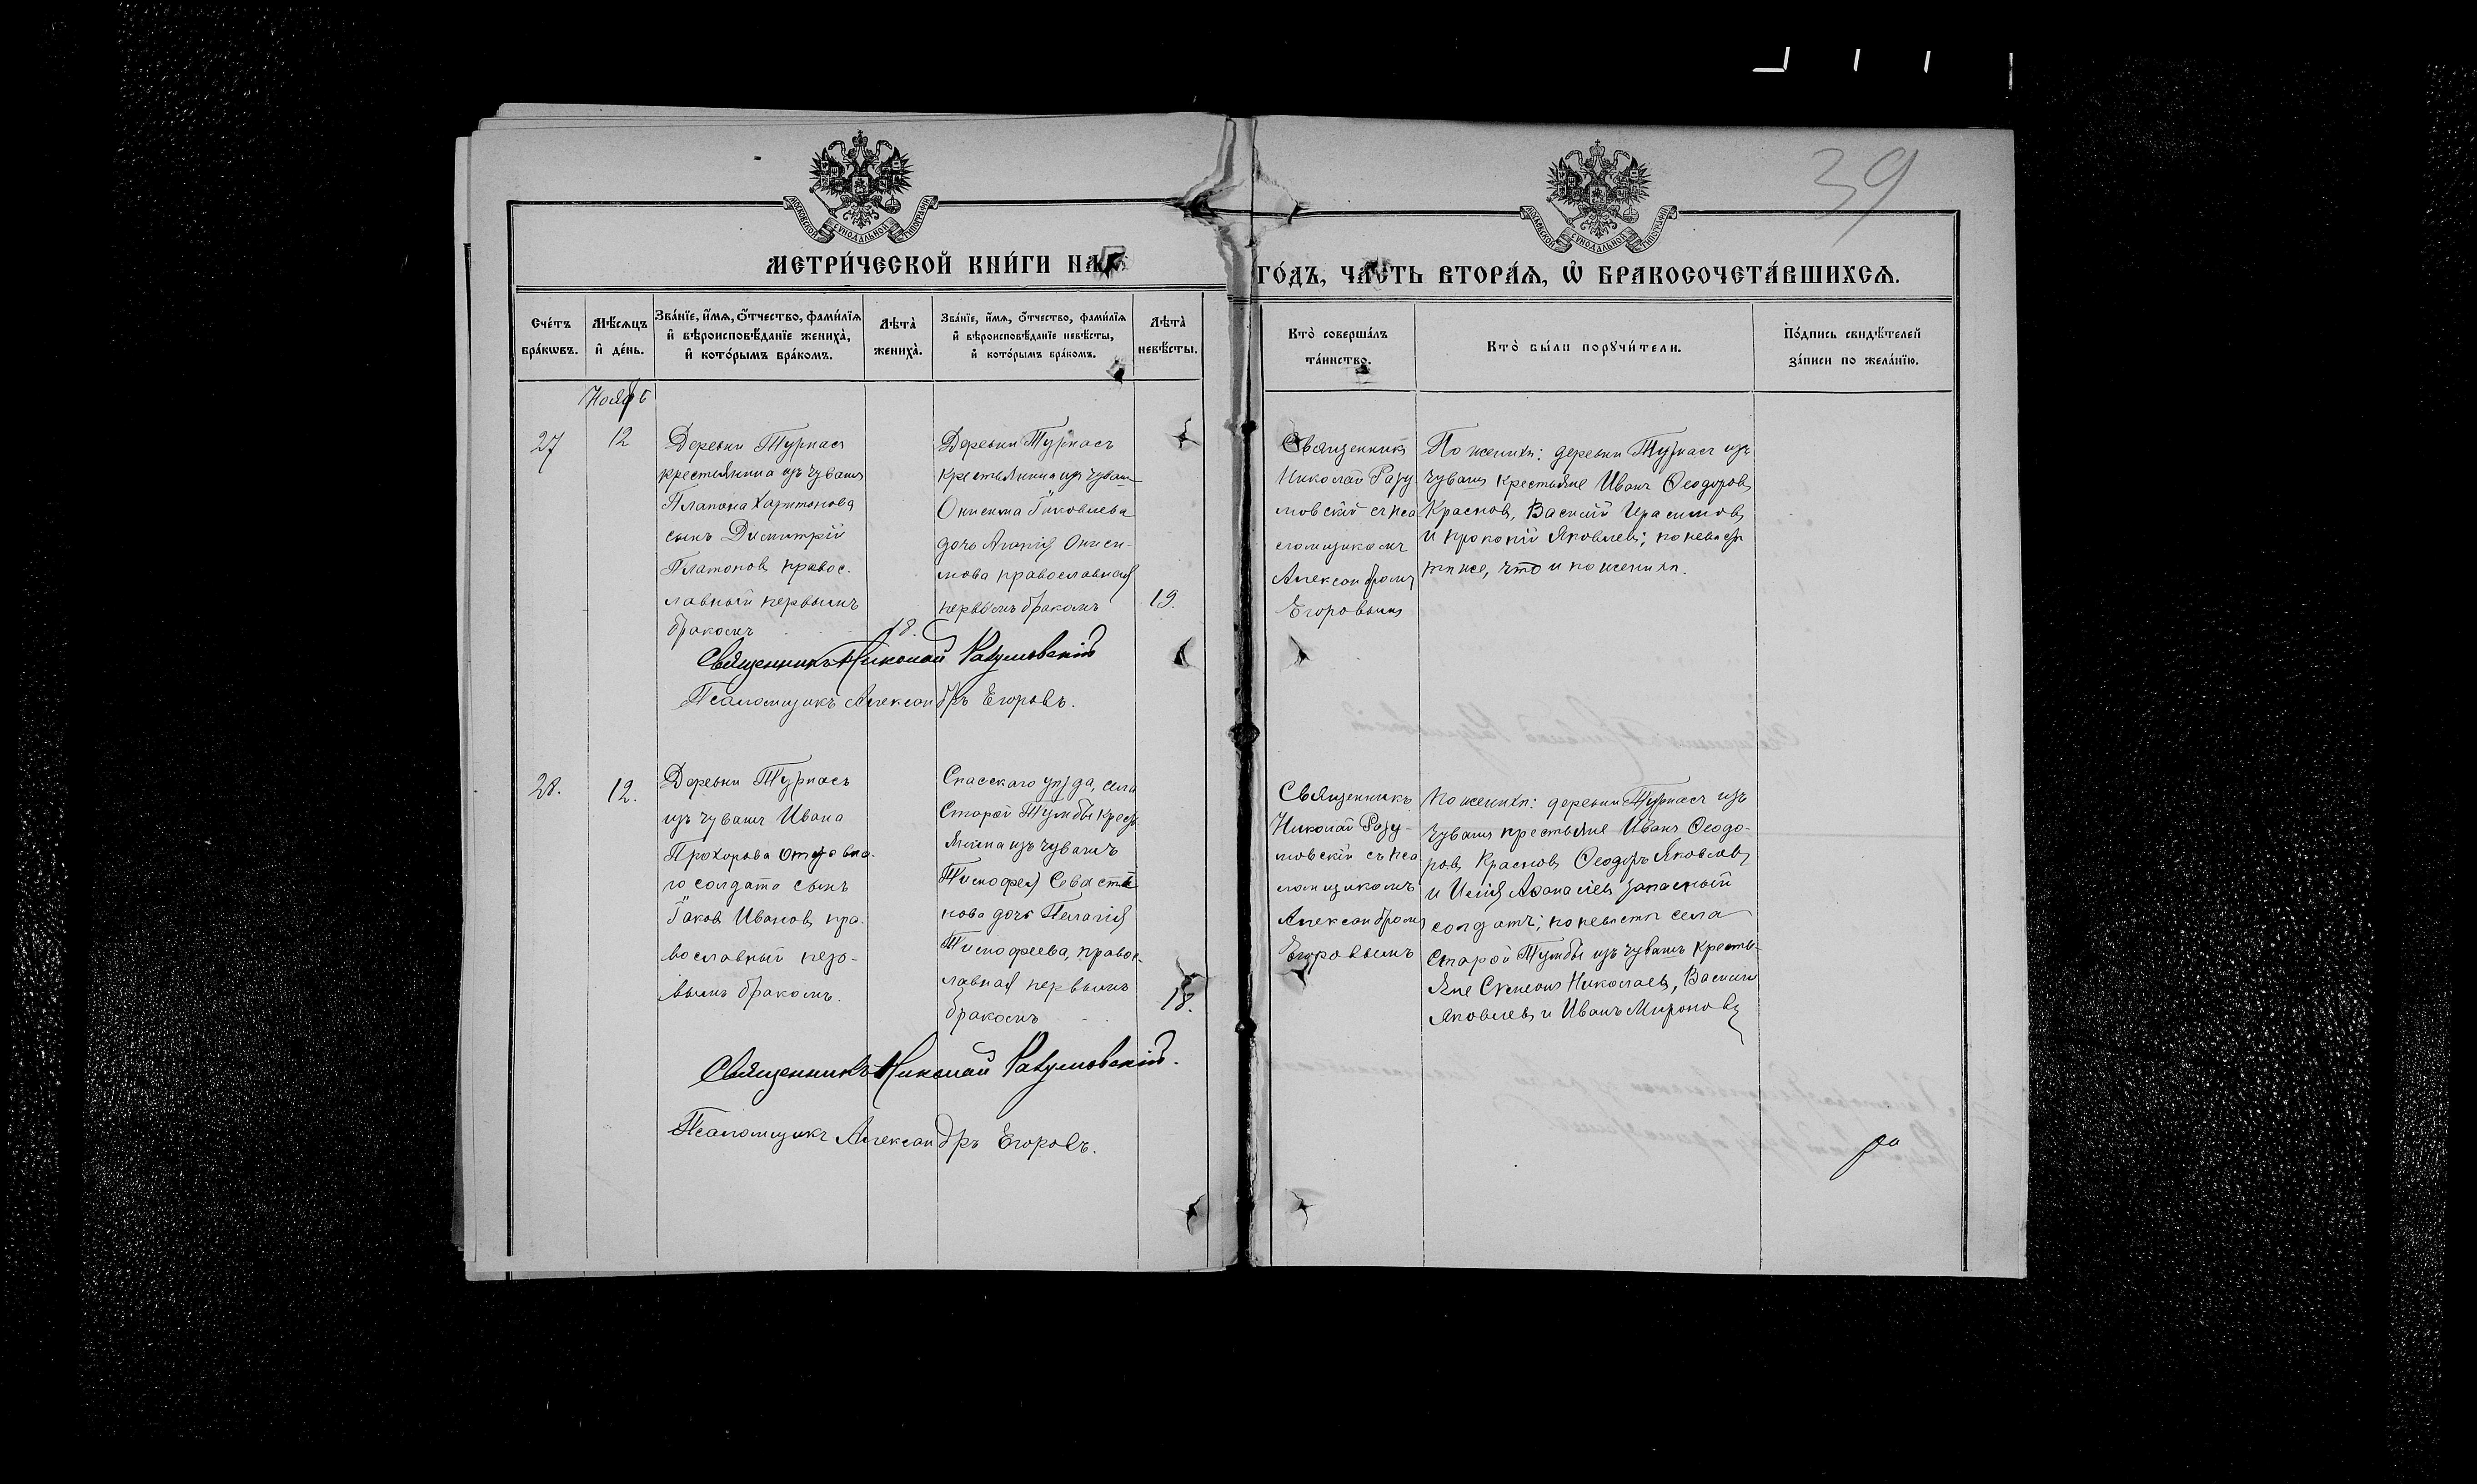 39
МОСКОВСКОЙ СѴНОДАЛЬНОЙ ТИПОГРАФІИ
МОСКОВСКОЙ СѴНОДАЛЬНОЙ ТИПОГРАФІИ
МЕТРИ́ЧЕСКОЙ КНИ́ГИ НА
ГО́ДЪ, ЧАСТЬ ВТОРА́Я, Ѡ БРАКОСОЧЕТА́ВШИХСЯ.
Счетъ бра́кωвъ.
Мѣсяцъ и де́нь.
Зва́нїе, и́мя, о́тчество, фами́лїя и вѣроисповѣданїе жениха̀, и кото́рымъ бра́комъ.
Лѣта̀ жениха̀.
Зва́нїе, и́мя, о́тчество, фами́лїя и вѣроисповѣданїе невѣсты, и кото́рымъ бра́комъ.
Лѣта̀ невѣсты.
Кто̀ соверша́лъ та́инство.
Кто̀ бы́ли порꙋчи́тели.
По́дпись свидѣтелей за́писи по жела́нїю.
Ноябр
27
12
Деревни Турнасъ
крестьянина изъ чувашъ
Платона Харитонова
сынъ Димитрій
Платоновъ правос-
лавный первымъ
бракомъ
18.
Деревни Турнасъ
крестьянина изъ чуваш
Онисима Іаковлева
дочь Ониси-
мова православная
первымъ бракомъ
19.
Священникъ
Николай Разу-
мовскій съ пса-
ломщикомъ
Александромъ
Егоровымъ
По женихѣ: деревни Турнасъ изъ
чувашъ крестьяне Иванъ Ѳеодоровъ
Красновъ, Василій Герасимовъ
и Прокопій Яковлевъ; по невѣстѣ
тѣ же, что и по женихѣ.
Священникъ Николай Разумовскій
Псаломщикъ Александръ Егоровъ.
28.
12.
Деревни Турнасъ
изъ чувашъ Ивана
Прохорова отставно-
го солдата сынъ
Іаковъ Ивановъ, пра-
вославный пер-
вымъ бракомъ.
Спасскаго уѣзда, села
Старой Тумбы кресть
янина изъ чувашъ
Тимофея Севастья
нова дочь Пелагія
Тимофеева, правос-
лавная первымъ
бракомъ
18.
Священникъ
Николай Разу-
мовскій съ пса
ломщикомъ
Александромъ
Егоровымъ
По женихѣ: деревни Турнасъ изъ
чувашъ крестьяне Иванъ Ѳеодо-
ровъ Красновъ Ѳеодоръ Яковлевъ
и Илія Аѳанасіевъ запасный
солдатъ; по невѣстѣ села
Старой Тумбы изъ чувашъ кресть-
яне Симеонъ Николаевъ, Василій
Яковлевъ и Иванъ Мироновъ
Священникъ Николай Разумовскій.
Псаломщикъ Александръ Егоровъ.